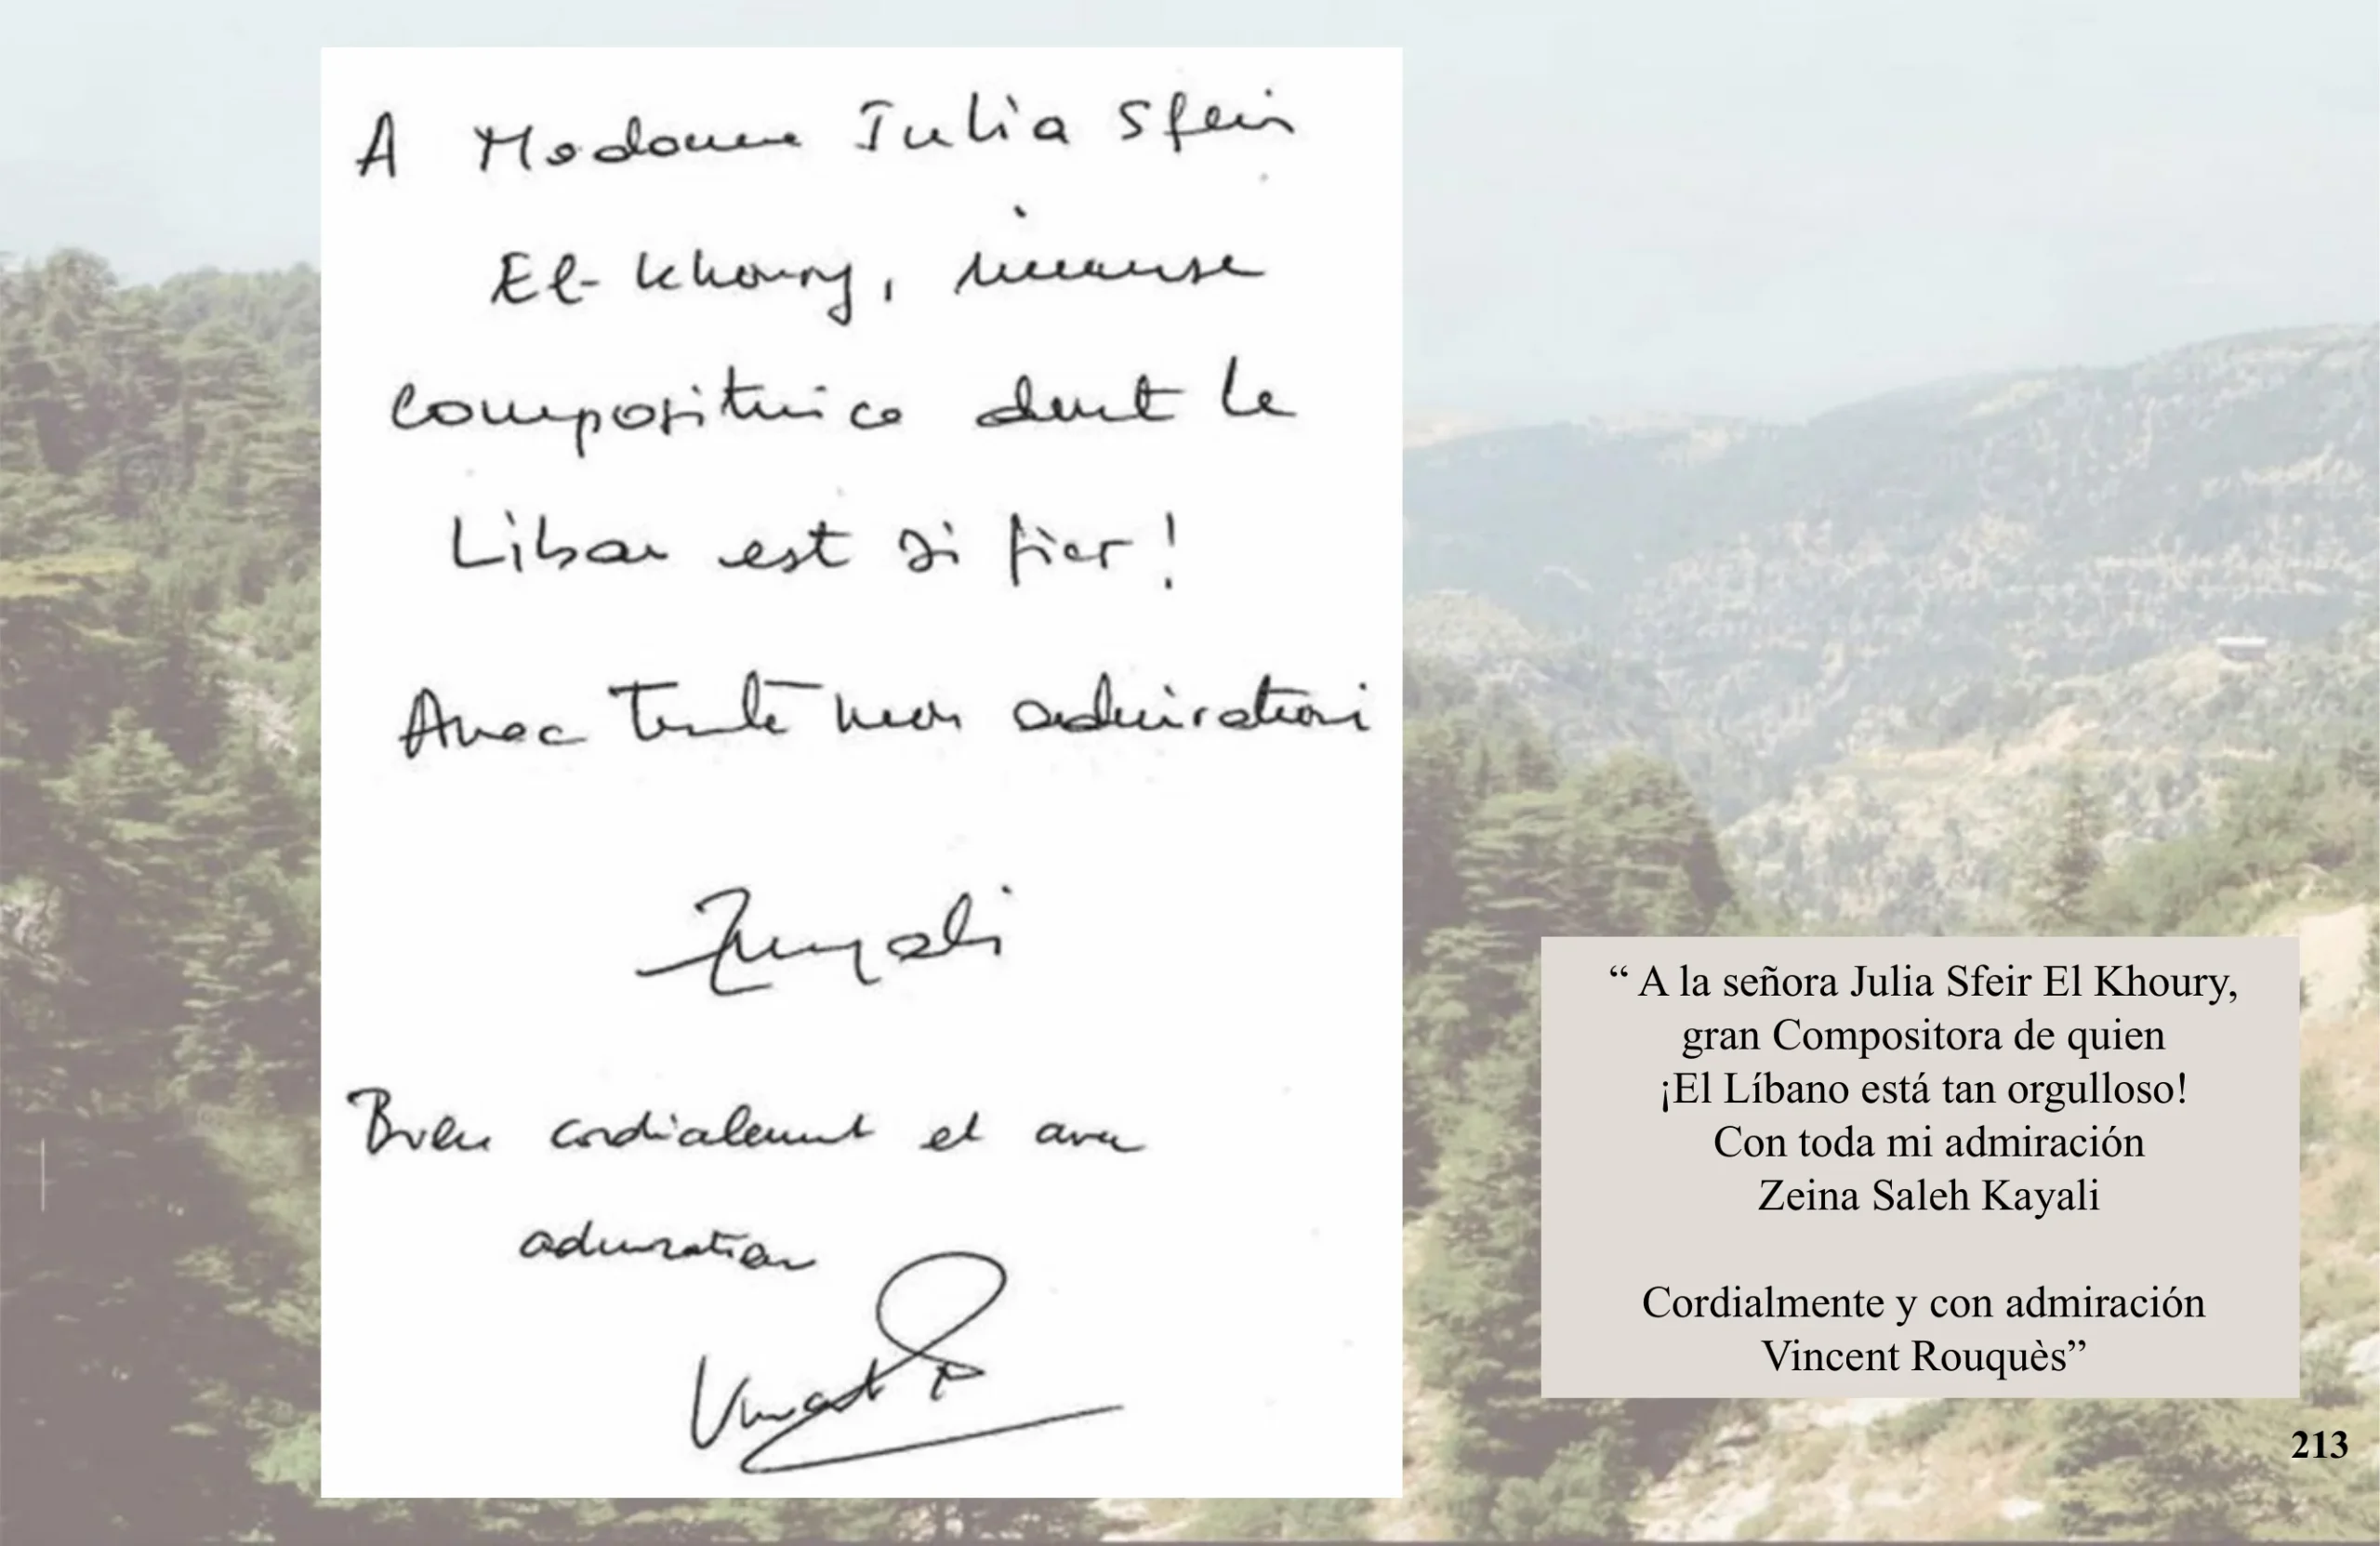 A Madame Julia Sfeir
El-Khoury, immense
compositrice dont le
Liban est si fier !
Avec toute mon admiration
Bien cordialement et avec
admiration
Vincent R
“ A la señora Julia Sfeir El Khoury,
gran Compositora de quien
¡El Líbano está tan orgulloso!
Con toda mi admiración
Zeina Saleh Kayali
Cordialmente y con admiración
Vincent Rouquès”
213